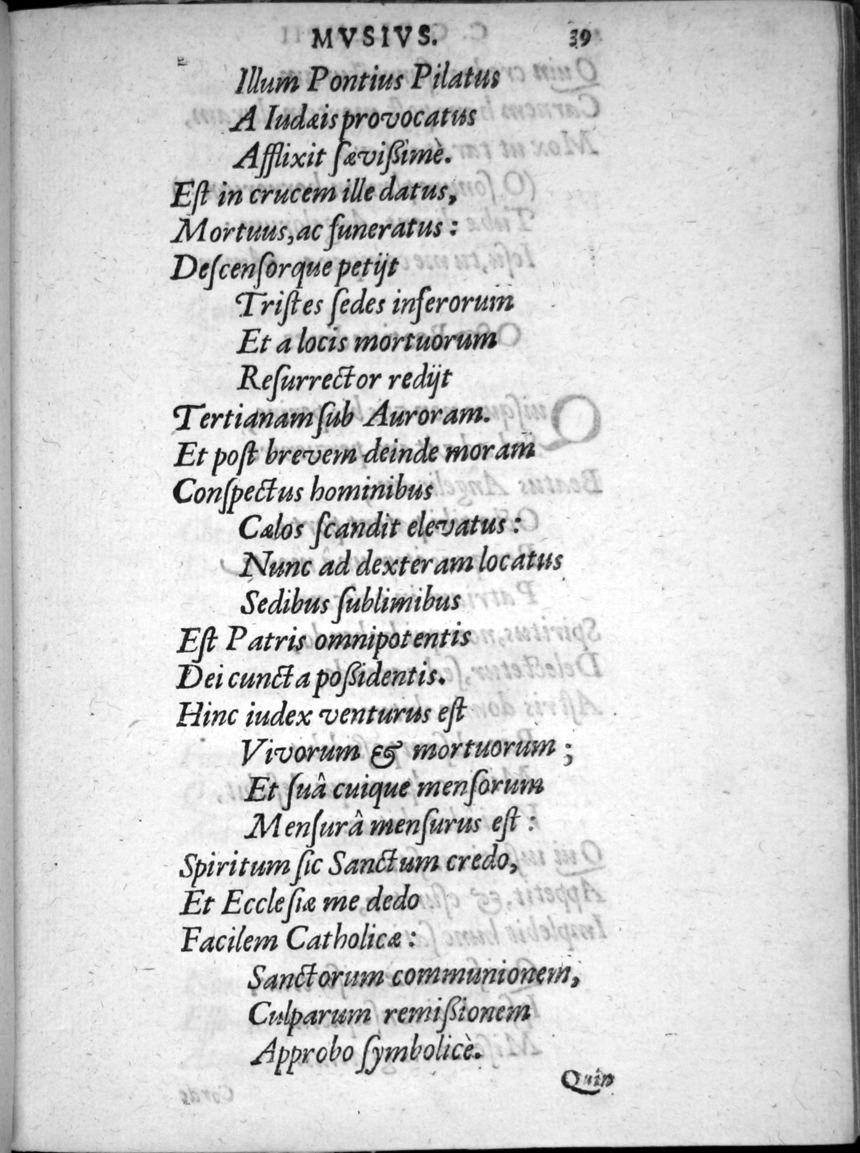 MVSIVS. 39
Illum Pontius Pilatus
A Iudæis provocatus
Afflixit sævißimè.
Est in crucem ille datus,
Mortuus, ac funeratus:
Descensorque petijt
Tristes sedes inferorum
Et a locis mortuorum
Resurrector redijt
Tertianam sub Auroram.
Et post brevem deinde moram
Conspectus hominibus
Cælos scandit elevatus:
Nunc ad dexteram locatus
Sedibus sublimibus
Est Patris omnipotentis
Dei cuncta poßidentis.
Hinc iudex venturus est
Vivorum & mortuorum;
Et suâ cuique mensorum
Mensurâ mensurus est:
Spiritum sic Sanctum credo,
Et Ecclesiæ me dedo
Facilem Catholicæ:
Sanctorum communionem,
Culparum remißionem
Approbo symbolicè.
Quin